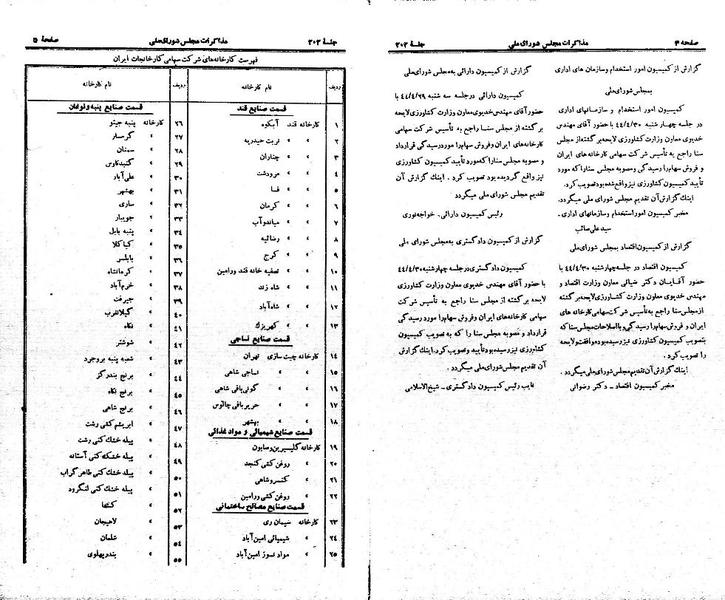 صفحه ۴
مذاکرات مجلس شورای ملی
جلسهٔ ۲۰۲
گزارش از کمیسیون امور استخدام وسازمان های اداری
بمجلس شورای ملی
کمیسیون امور استخدام و سازمانهای اداری
در جلسه چهارشنبه ۴۴/۴/۳۰ با حضور آقای مهندس
خدیوی معاون وزارت کشاورزی لایحه برگشته از مجلس
سنا راجع به تأسیس شرکت سهامی کارخانه های ایران
و فروش سهام را مورد رسیدگی و مصوبه مجلس سنا را که مورد
تأیید کمیسیون کشاورزی نیز واقع شده بود تصویب کرد.
اینک گزارش آن تقدیم مجلس شورای ملی میگردد.
مخبر کمیسیون امور استخدام وسازمانهای اداری.
سید علی صائب
گزارش از کمیسیون اقتصاد بمجلس شورای ملی
کمیسیون اقتصاد در جلسه چهارشنبه ۴۴/۴/۳۰ با
حضور آقایان دکتر ضیائی معاون وزارت اقتصاد و
مهندس خدیوی معاون وزارت کشاورزی لایحه برگشته
از مجلس سنا راجع به تأسیس شرکت سهامی کارخانه های
ایران و فروش سهام را مورد رسیدگی و با اصلاحات مجلس سنا که
مورد تصویب کمیسیون کشاورزی نیز رسیده بود موافقت و لایحه
را تصویب کرد.
اینک گزارش آن تقدیم مجلس شورای ملی میگردد.
مخبر کمیسیون اقتصاد - دکتر رضوانی
گزارش از کمیسیون دارائی به مجلس شورای ملی
کمیسیون دارائی در جلسه سه شنبه ۴۴/۴/۲۹
با حضور آقای مهندس خدیوی معاون وزارت کشاورزی لایحه
برگشته از مجلس سنا راجع به تأسیس شرکت سهامی
کارخانه های ایران و فروش سهام را مورد رسیدگی قرار داد
و مصوبه مجلس سنا را که مورد تأیید کمیسیون کشاورزی
نیز واقع گردیده بود تصویب کرد. اینک گزارش آن
تقدیم مجلس شورای ملی میگردد.
رئیس کمیسیون دارائی. خواجه نوری
گزارش از کمیسیون دادگستری به مجلس شورای ملی
کمیسیون دادگستری در جلسه چهارشنبه ۴۴/۴/۳۰
با حضور آقای مهندس خدیوی معاون وزارت کشاورزی
لایحه برگشته از مجلس سنا راجع به تأسیس شرکت
سهامی کارخانه های ایران و فروش سهام را مورد رسیدگی
قرار داد و مصوبه مجلس سنا را که به تصویب کمیسیون
کشاورزی نیز رسیده بود تأیید و تصویب کرد. اینک گزارش
آن تقدیم مجلس شورای ملی میگردد.
نایب رئیس کمیسیون دادگستری - شیخ الاسلامی
جلسهٔ ۲۰۲
مذاکرات مجلس شورای ملی
صفحهٔ ۵
فهرست کارخانه های شرکت سهامی کارخانجات ایران
ردیف نام کارخانه
قسمت صنایع قند
۱ کارخانه قند آبکوه
۲ » » تربت حیدریه
۳ » » چناران
۴ » » مرودشت
۵ » » فسا
۶ » » کرمان
۷ » » میاندوآب
۸ » » رضائیه
۹ » » کرج
۱۰ » تصفیه خانه قند ورامین
۱۱ » » شازند
۱۲ » » شاه آباد
۱۳ » » کهریزک
قسمت صنایع نساجی
۱۴ کارخانه چیت سازی تهران
۱۵ » نساجی شاهی
۱۶ » گونی بافی شاهی
۱۷ » حریربافی چالوس
۱۸ » بهشهر
قسمت صنایع شیمیائی و مواد غذائی
۱۹ کارخانه گلیسیرین و صابون
۲۰ » روغن کشی گنجد
۲۱ » کنسرو شاهی
۲۲ » روغن کشی ورامین
قسمت صنایع مصالح ساختمانی
۲۳ کارخانه سیمان ری
۲۴ » شیمیائی امین آباد
۲۵ » مواد نسوز امین آباد
ردیف نام کارخانه
قسمت صنایع پنبه و نوغان
۲۶ کارخانه پنبه جیتو
۲۷ » » گرمسار
۲۸ » » سمنان
۲۹ » » گنبدکاوس
۳۰ » » علی آباد
۳۱ » » بهشهر
۳۲ » » ساری
۳۳ » » جویبار
۳۴ » پنبه بابل
۳۵ » » کیاکلا
۳۶ » » بابلسر
۳۷ » » کرمانشاه
۳۸ » » خرم آباد
۳۹ » » جیرفت
۴۰ » » گیلانغرب
۴۱ » » نکاء
۴۲ » » شوشتر
۴۳ » شعبه پنبه بروجرد
۴۴ » برنج بندرگز
۴۵ » برنج نکاء
۴۶ » برنج شاهی
۴۷ » ابریشم کشی رشت
۴۸ » پیله خشک کنی رشت
۴۹ » پیله خشک کنی آستانه
۵۰ » پیله خشک کنی طاهر گراب
۵۱ » پیله خشک کنی لنگرود
۵۲ » کنفها
۵۳ » لاهیجان
۵۴ » شلمان
۵۵ » بندر پهلوی